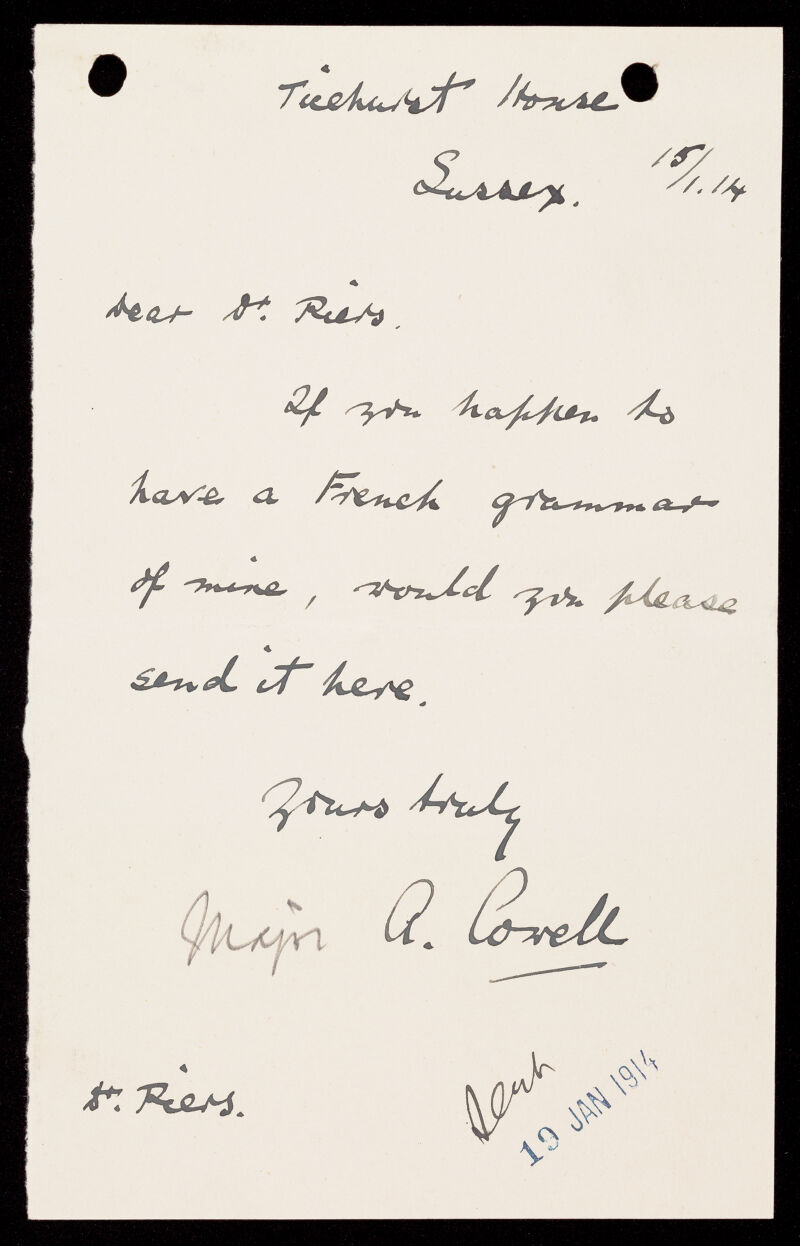 Ticehurst House
Sussex. 15/1.14
Dear Dr. Piers.
If you happen to
have a French grammar
of mine, would you please
send it here.
Yours truly
Major A. Cowell
Dr. Piers.
Sent
19 JAN 1914